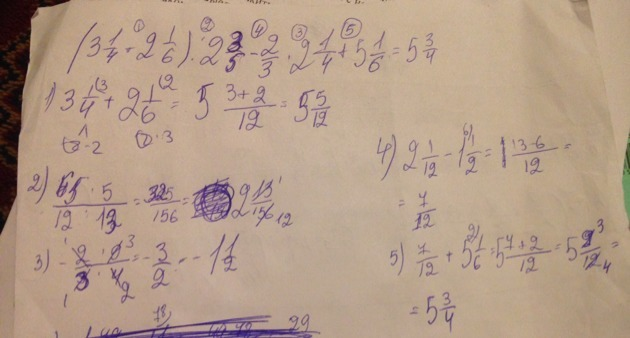 (3 1/4 + 2 1/6) : 2 3/5 - 2/3 · 2 1/4 + 5 1/6 = 5 3/4
1) 3 1/4 + 2 1/6 = 5 (3+2)/12 = 5 5/12
2) 65 · 5 / 12 · 13 = 325/156 = 2 13/156
3) - 2 · 9 / 3 · 4 = - 3/2 = - 1 1/2
4) 2 1/12 - 1 1/2 = 1 (13-6)/12 =
= 7/12
5) 7/12 + 5 1/6 = 5 (7+2)/12 = 5 9/12 =
= 5 3/4
29